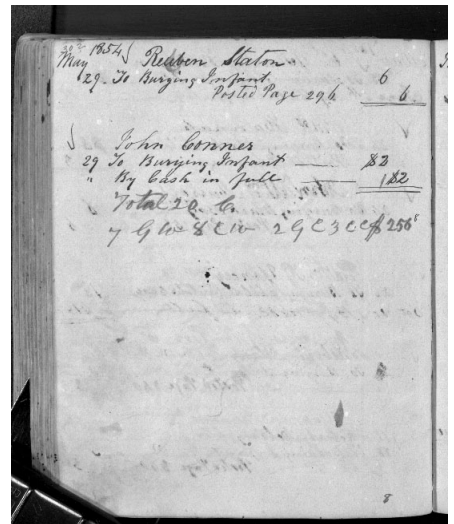 May 1854
Reuben Staton
29. To Burying Infant 6
Posted Page 296 6
John Conner
29 To Burying Infant $2
" By Cash in full $2
Total 20 C.
7 G W 8 C W 2 G C 3 C C $256
8